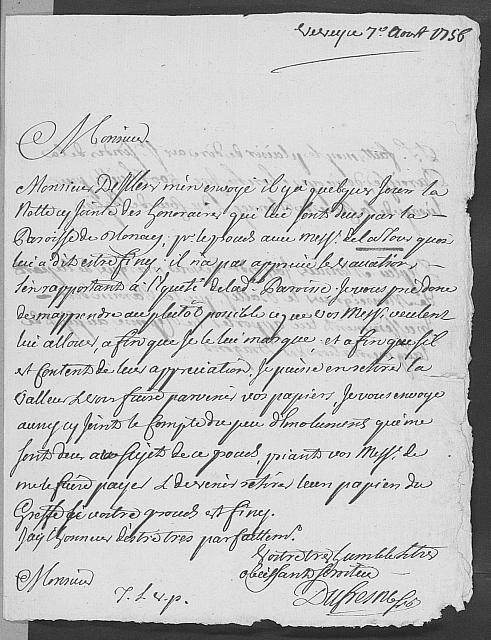 Vevey ce 7e Aout 1756
Monsieur
Monsieur m'envoye il y a quelques Jours la
Notte cy jointe des honoraires que lui sont deus par la
Paroisse de Monney, pr. le procés avec Messrs. de la Tour quon
lui a dit estre finy, il n'a pas apprecié les vacations
s'en rapportant à l'equité de lad. Paroisse. Je vous prie donc
de m'apprendre au plûtôt possible ce que vos Messrs. veulent
lui allouer, afin que je le lui marque, et afin que s'il
est Content de leur appreciation, Je puisse en retirer la
Valleur & vous faire parvenir vos papiers. Je vous envoye
aussy cy Joint le Compte du peu d'Emolumens qui me
sont deus au Sujet de ce procés, priant vos Messrs. de
me le faire payer & de venir retirer leurs papiers du
Greffe si votre procés est finy.
J'ay l'honneur d'estre tres parfaittemt.
Votre tres humble & tres
obeissant Serviteur
Monsieur
Dufresne